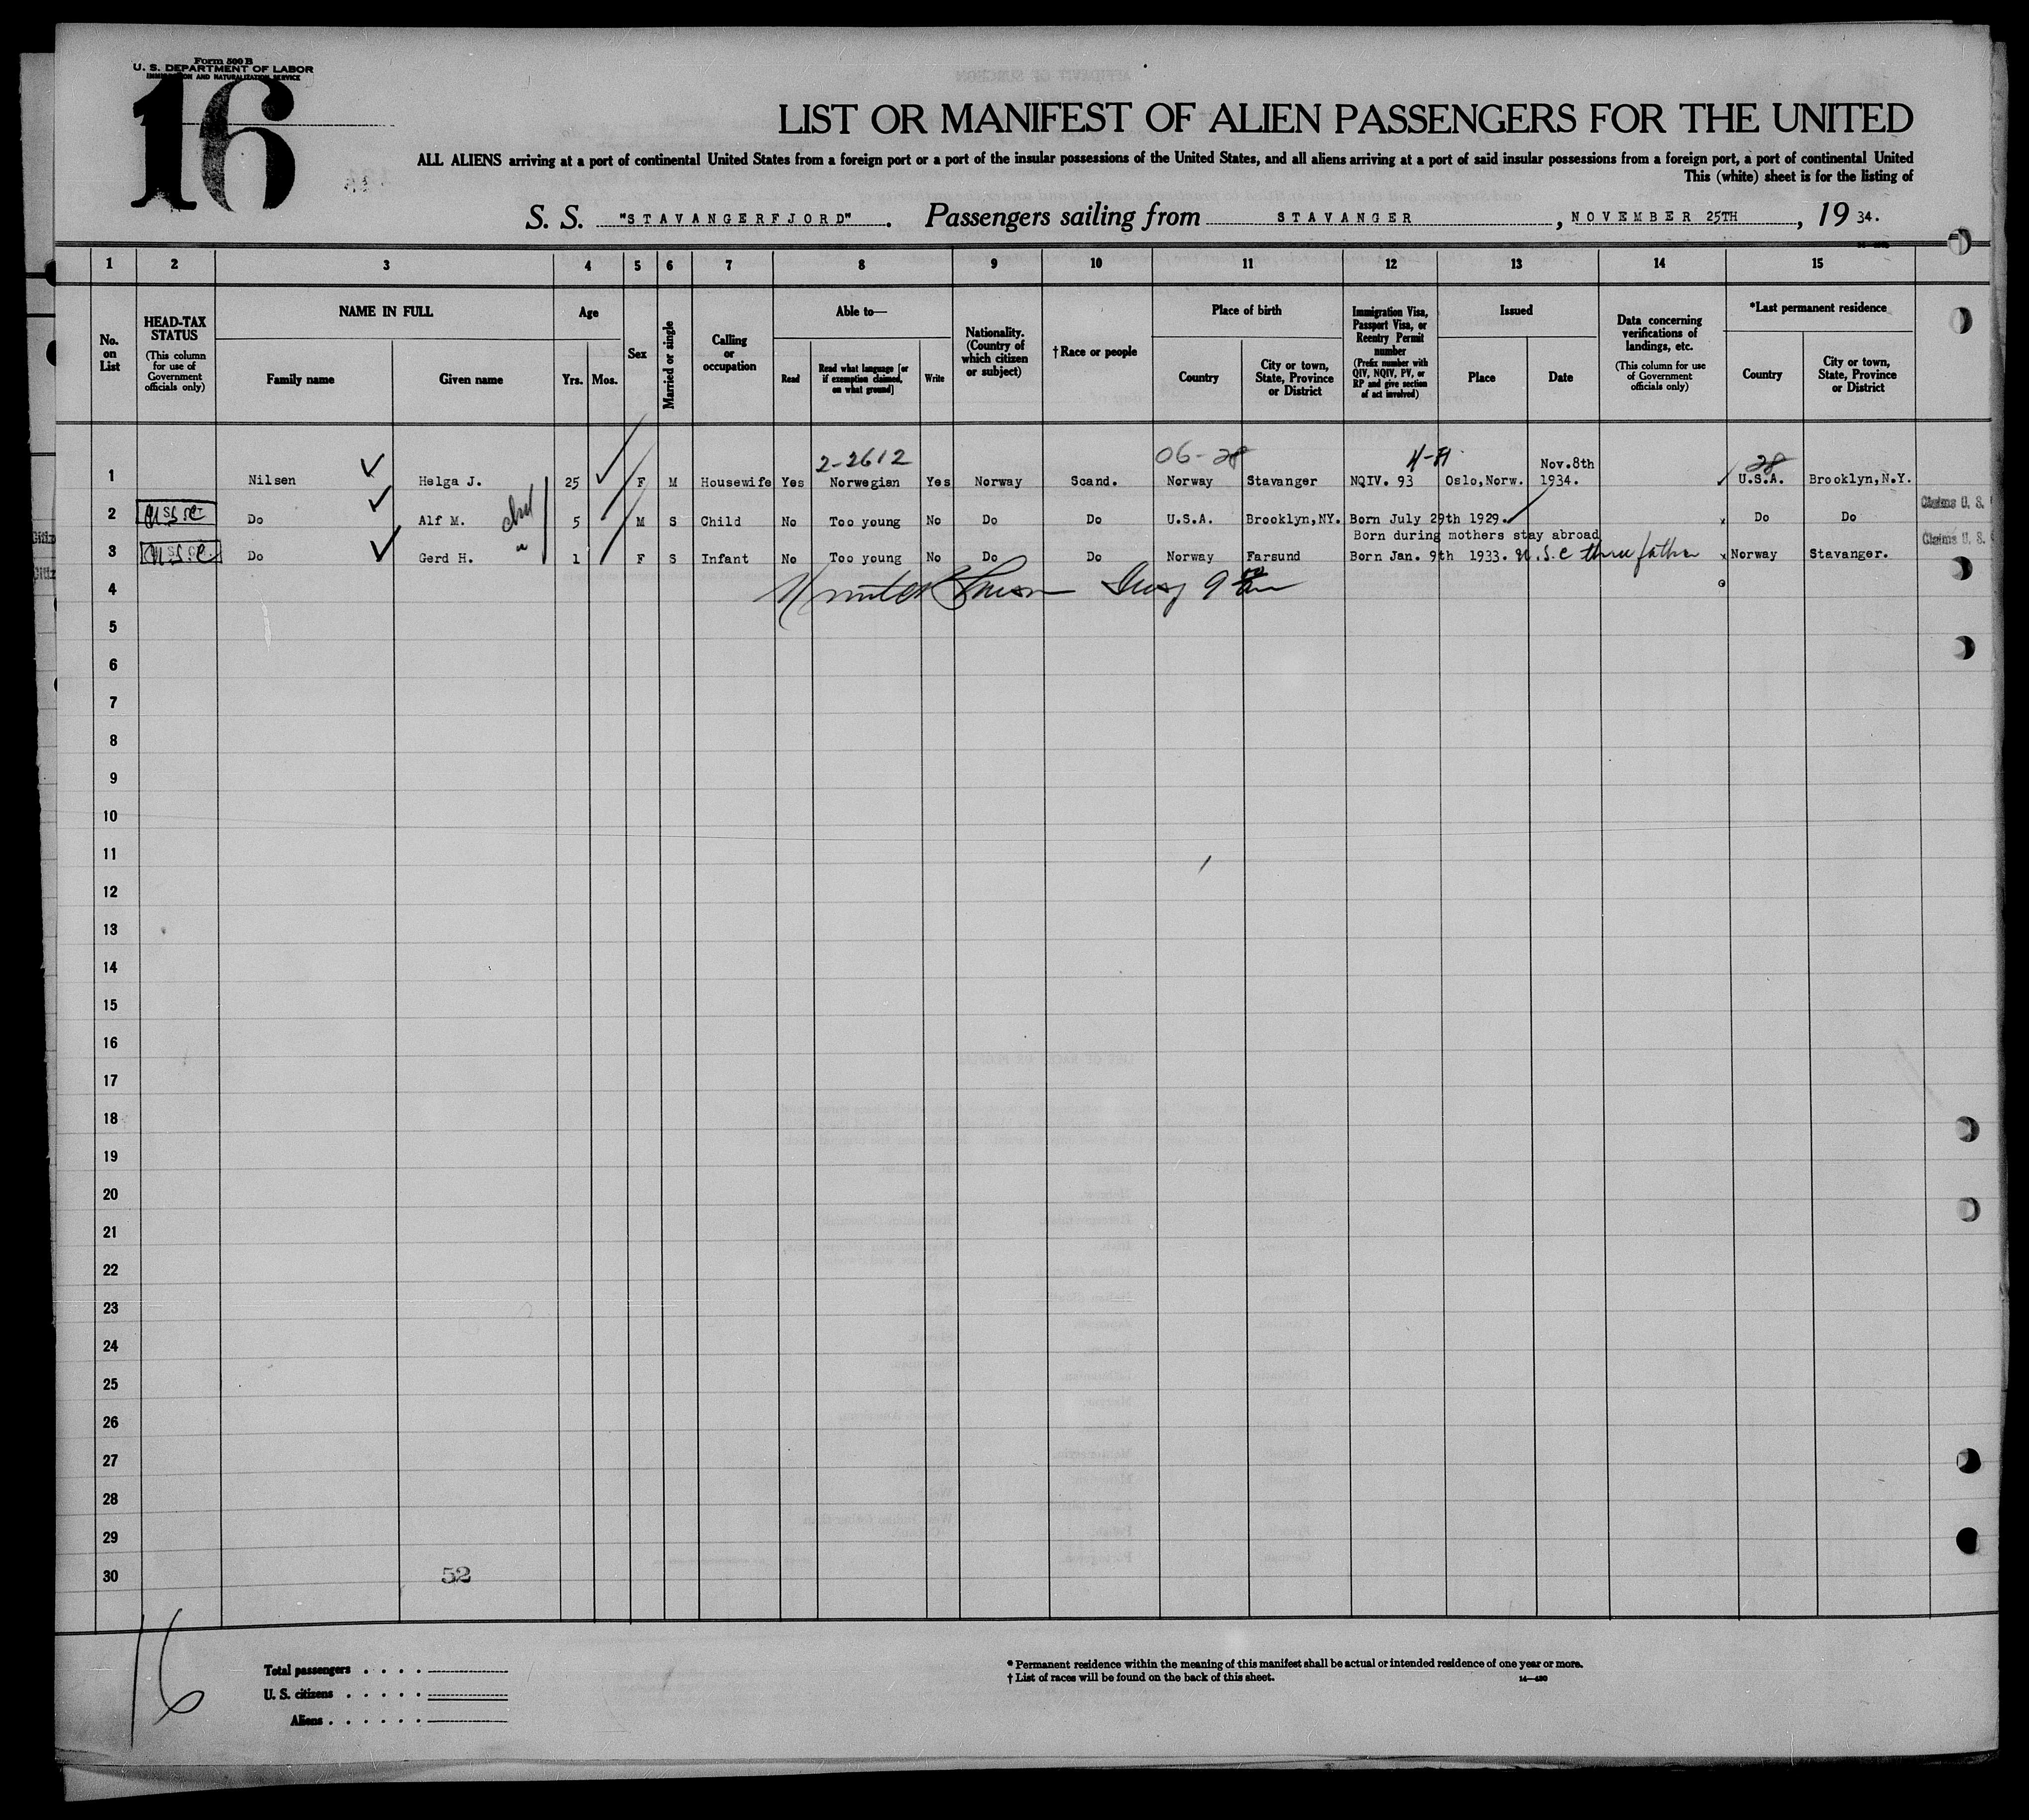 Form 500 B
U. S. DEPARTMENT OF LABOR
IMMIGRATION AND NATURALIZATION SERVICE
16
LIST OR MANIFEST OF ALIEN PASSENGERS FOR THE UNITED
ALL ALIENS arriving at a port of continental United States from a foreign port or a port of the insular possessions of the United States, and all aliens arriving at a port of said insular possessions from a foreign port, a port of continental United
This (white) sheet is for the listing of
S. S. "STAVANGERFJORD". Passengers sailing from STAVANGER, NOVEMBER 25TH, 19 34.
1 2 3 4 5 6 7 8 9 10 11 12 13 14 15
No. on List
HEAD-TAX STATUS (This column for use of Government officials only)
NAME IN FULL
Family name
Given name
Age
Yrs. Mos.
Sex
Married or single
Calling or occupation
Able to—
Read
Read what language [or if exemption claimed, on what ground]
Write
Nationality. (Country of which citizen or subject)
† Race or people
Place of birth
Country
City or town, State, Province or District
Immigration Visa, Passport Visa, or Reentry Permit number (Prefix number with QIV, NQIV, PV, or RP and give section of act involved)
Issued
Place
Date
Data concerning verifications of landings, etc. (This column for use of Government officials only)
*Last permanent residence
Country
City or town, State, Province or District
2-2612 06-28 28
1 Nilsen Helga J. 25 F M Housewife Yes Norwegian Yes Norway Scand. Norway Stavanger NQIV. 93 Oslo, Norw. Nov.8th 1934. U.S.A. Brooklyn,N.Y.
2 U S C Do Alf M. 5 M S Child No Too young No Do Do U.S.A. Brooklyn,NY. Born July 29th 1929. Do Do Claims U. S.
Born during mothers stay abroad
3 U S C Do Gerd H. 1 F S Infant No Too young No Do Do Norway Farsund Born Jan. 9th 1933. U.S.C thru father Norway Stavanger. Claims U. S.
4
5
6
7
8
9
10
11
12
13
14
15
16
17
18
19
20
21
22
23
24
25
26
27
28
29
30
52
16
Total passengers
U. S. citizens
Aliens
* Permanent residence within the meaning of this manifest shall be actual or intended residence of one year or more.
† List of races will be found on the back of this sheet.
14—480